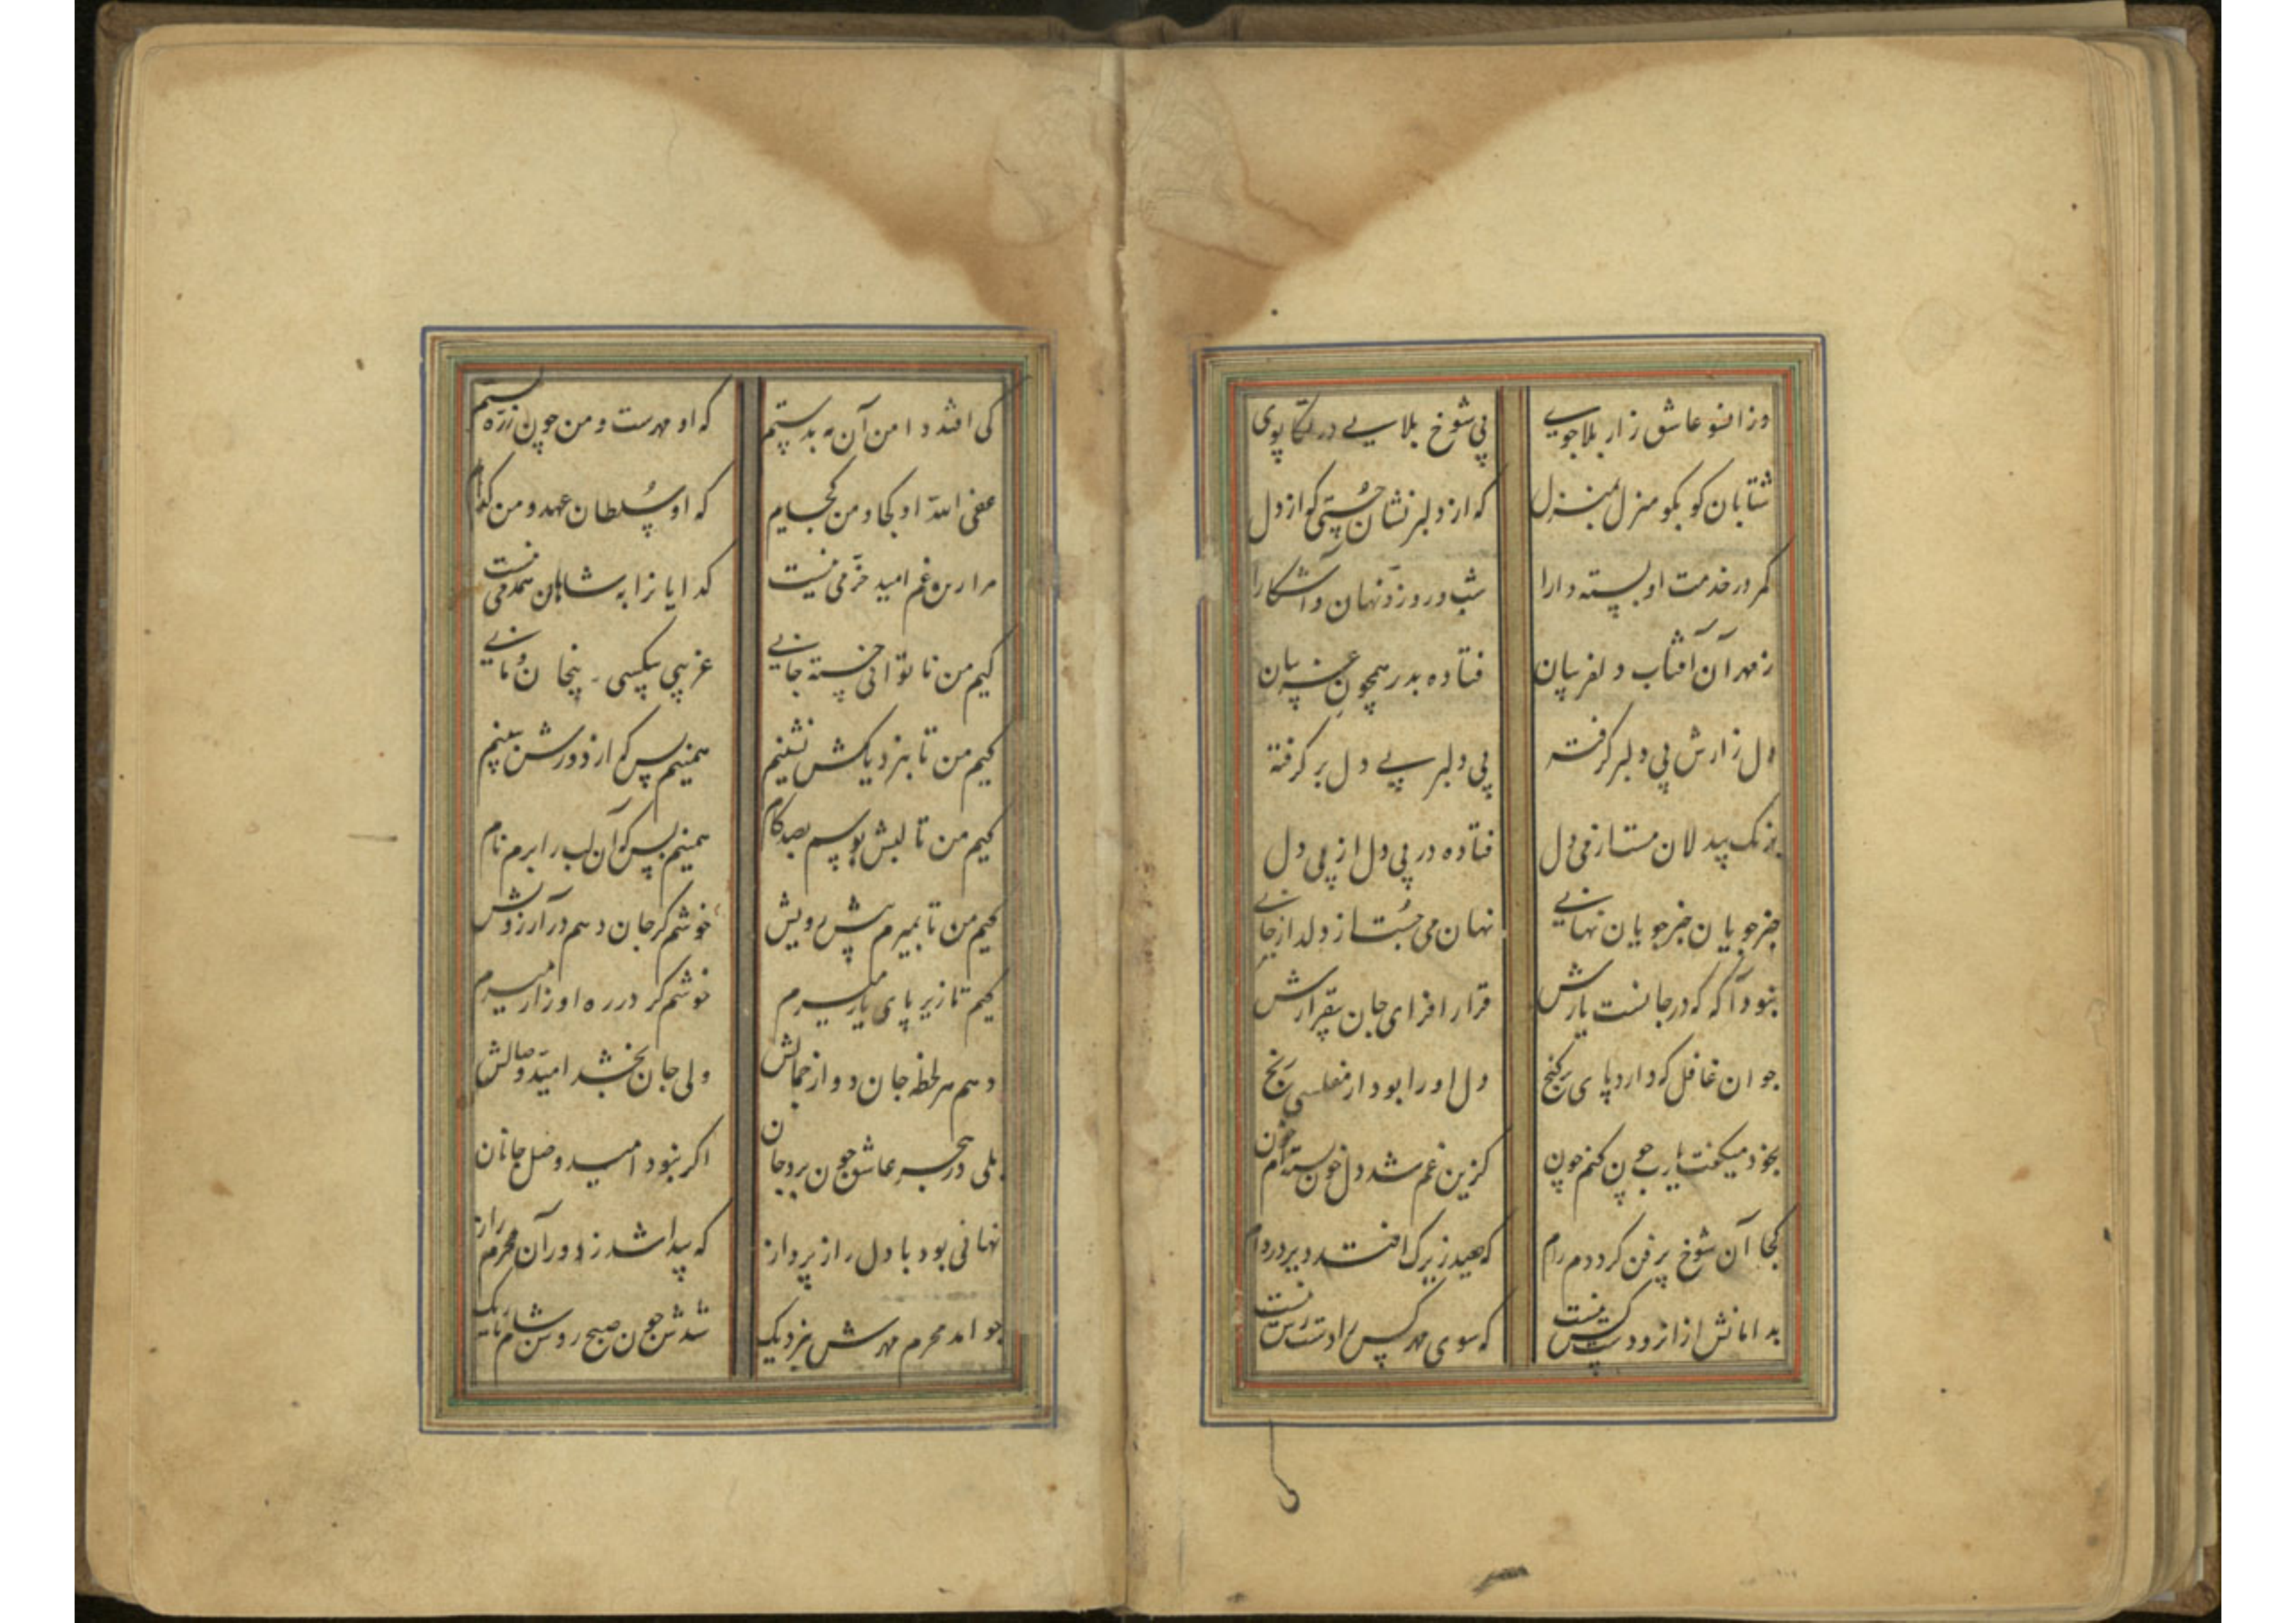 وز انسو عاشق زار بلاجویی پی شوخ بلایی در تکاپوی
شتابان کو بکو منزل بمنزل که از دلبر نشان جستی که از دل
کمر در خدمت او بسته دارا شب و روز و نهان و آشکارا
ز مهر آن آفتاب دلفریبان فتاده بدر همچون غریبان
دل زارش پی دلبر گرفته پی دلبر پی دل بر گرفته
بیدلان مست از می دل فتاده در پی دل از پی دل
خبر جویان خبر جویان نهانی نهان می جست از دلدار جانی
نبود آگه که در جانست یارش قرار افزای جان بیقرارش
جوان غافل که دارد پای بر گنج دل او را بود از مفلسی رنج
بخود میگفت یارب چون کنم چون کزین غم شد دل خون بسته ام خون
کجا آن شوخ پر فن گردم رام که صید زیرک افتد دیر در دام
بدامانش از آنرو دست کس نیست که سوی مهر کس را دست رس نیست
کی افتد دامن آن مه بدستم که او مهرست و من چون ذره پستم
عفی الله او کجا و من کجایم که او سلطان عهد و من گدایم
مرا زین غم امید خرمی نیست گدایانرا به شاهان همدمی نیست
کیم من ناتوانی خسته جانی غریبی بیکسی بی خان و مانی
کیم من تا بنزدیکش نشینم همینم بس که از دورش ببینم
کیم من تا لبش بوسم بصد کام همینم بس که آن لب را برم نام
کیم من تا بمیرم پیش رویش خوشم گر جان دهم در آرزویش
کیم تا زیر پای یار میرم خوشم گر در ره او زار میرم
دهم هر لحظه جان دور از جمالش ولی جان بخشد امید وصالش
بلی در هجر عاشق چون برد جان اگر نبود امید وصل جانان
نهانی بود با دل راز پرداز که پیدا شد ز دور آن محرم راز
چو امد محرم مهرش بنزدیک شدش چون صبح روشن شام تاریک